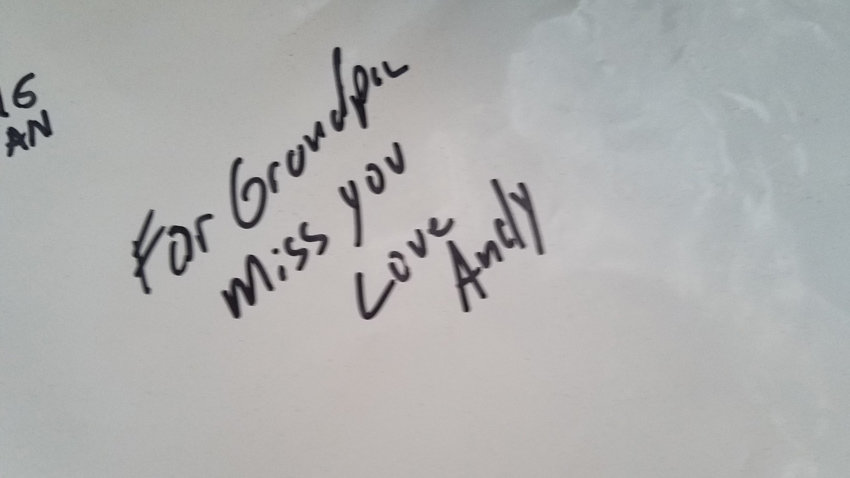 16
AN
For Grandpa
Miss you
Love
Andy